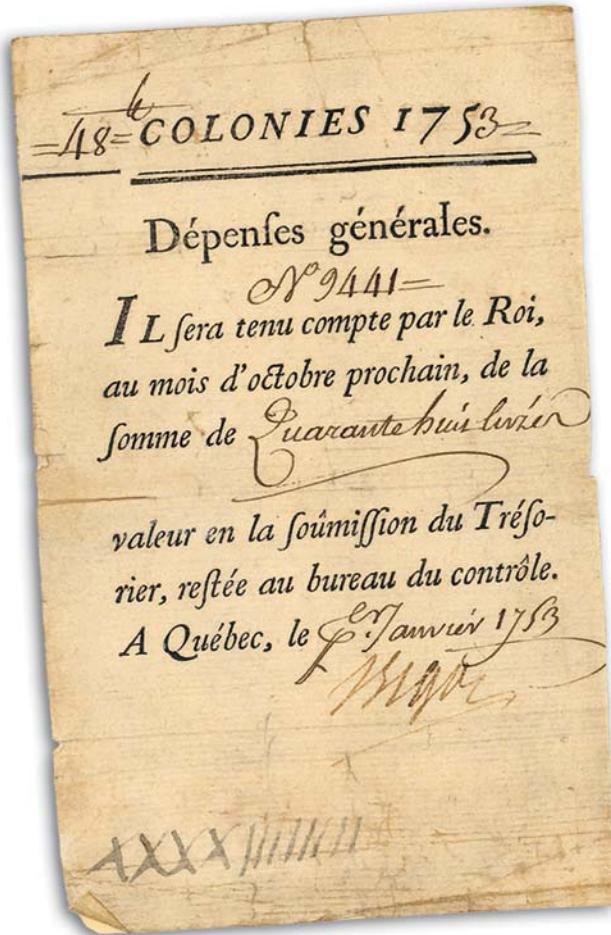 =48=lt COLONIES 1753=
Dépenſes générales.
N.º 9441=
IL ſera tenu compte par le Roi,
au mois d'octobre prochain, de la
ſomme de Quarante huit livres
valeur en la ſoûmiſſion du Tréſo-
rier, reſtée au bureau du contrôle.
A Québec, le p.er Janvier 1753
Bigot
XXXXIIIIIIII